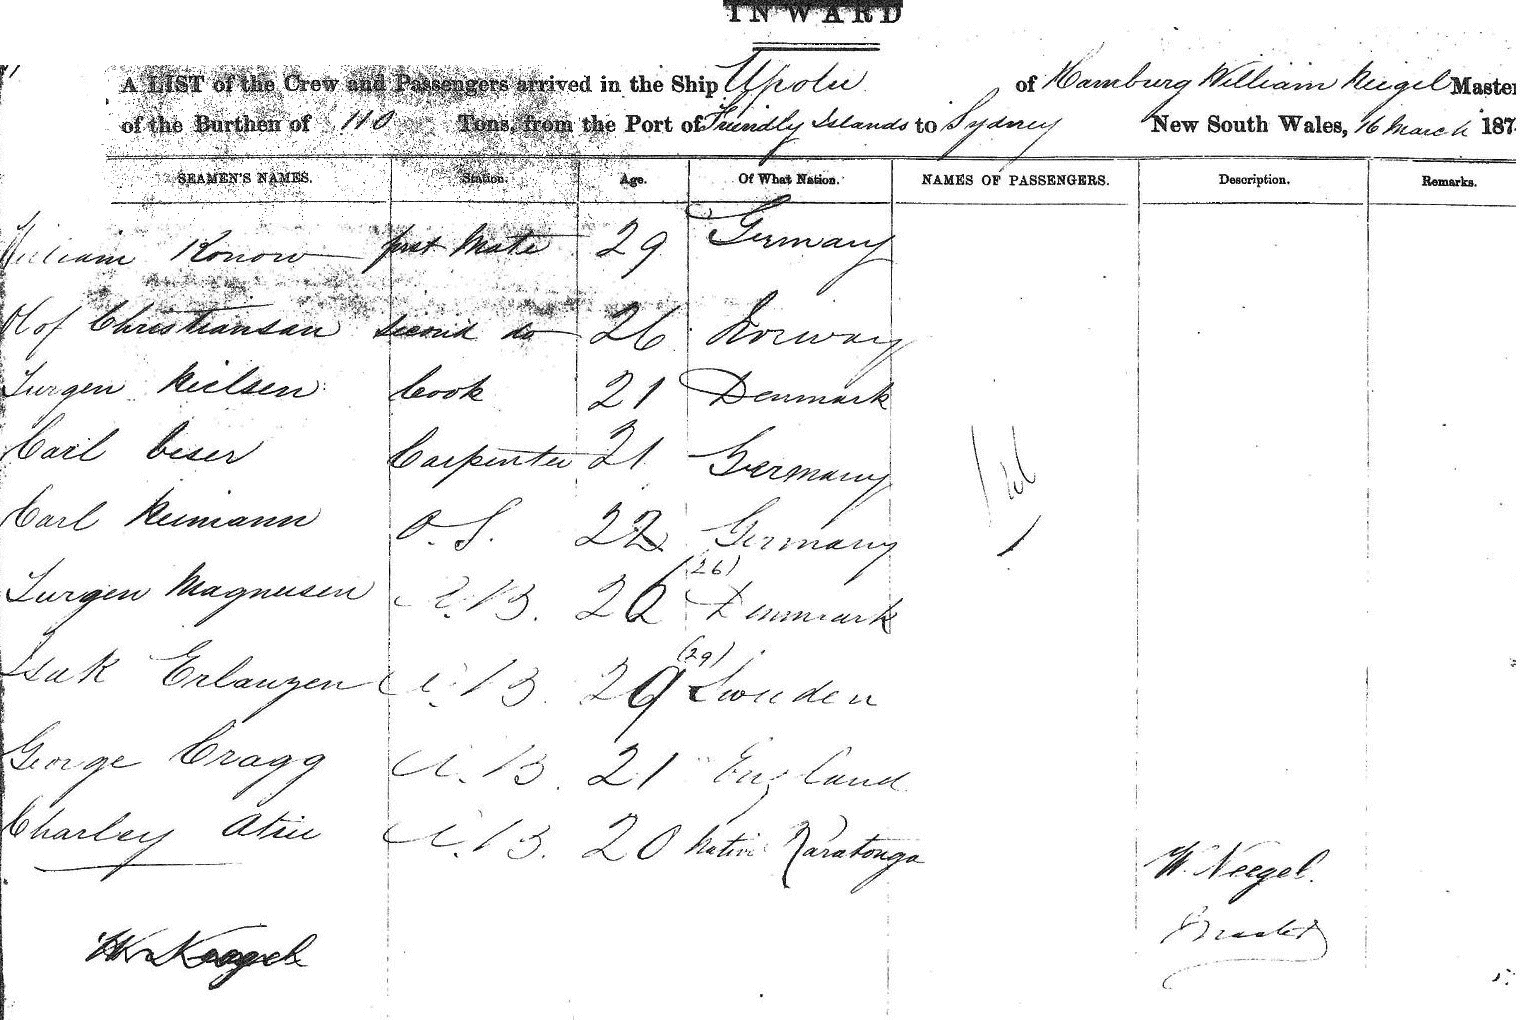 INWARD
A LIST of the Crew and Passengers arrived in the Ship Upolu of Hamburg William Niegel Master
of the Burthen of 110 Tons, from the Port of Friendly Islands to Sydney New South Wales, 16 March 187
SEAMEN'S NAMES. Station. Age. Of What Nation. NAMES OF PASSENGERS. Description. Remarks.
William Konow first Mate 29 Germany
Olof Christiansan second do 26 Norway
Jurgen Nielsen Cook 21 Denmark
Carl Ceser Carpenter 21 Germany
Carl Neimann O.S. 22 Germany
Jurgen Magnusen A.B. 26 (26) Denmark
Isak Erlanzen A.B. 29 (29) Sweden
George Cragg A.B. 21 England
Charley Atiu A.B. 20 Native Raratonga
Nil
W. Neegel.
Master
W. Neegel